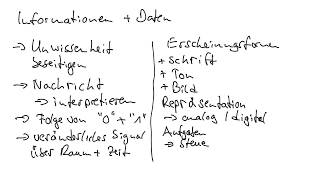 Informationen + Daten
→ Unwissenheit
beseitigen
→ Nachricht
→ interpretieren
→ Folge von "0" + "1"
→ veränderliches Signal
über Raum + Zeit
Erscheinungsformen
+ Schrift
+ Ton
+ Bild
Repräsentation
→ analog / digital
Aufgaben
→